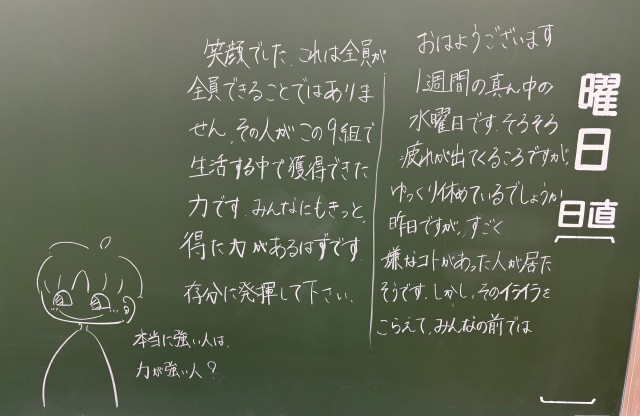 おはようございます
1週間の真ん中の
水曜日です。そろそろ
疲れが出てくるころですが、
ゆっくり休めているでしょうか
昨日ですが、すごく
嫌なコトがあった人が居た
そうです。しかし、そのイライラを
こらえて、みんなの前では
笑顔でした。これは全員が
全員できることではありま
せん。その人がこの9組で
生活する中で獲得できた
力です。みんなにもきっと、
得た力があるはずです。
存分に発揮して下さい。
本当に強い人は、
力が強い人？
曜日
日直